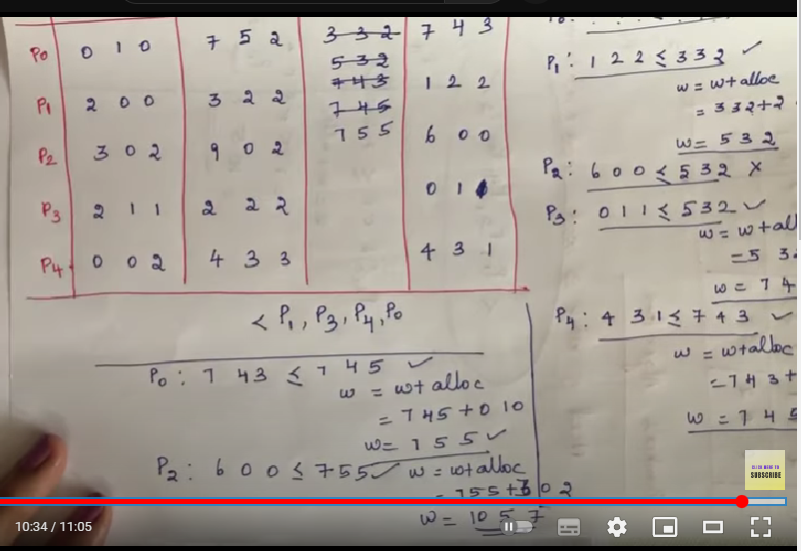 P0 0 1 0 7 5 2 3 3 2 7 4 3
5 3 2
7 4 3
P1 2 0 0 3 2 2 7 4 5 1 2 2
7 5 5
P2 3 0 2 9 0 2 6 0 0
P3 2 1 1 2 2 2 0 1
P4 0 0 2 4 3 3 4 3 1
< P1, P3, P4, P0
P0 : 7 4 3 ≤ 7 4 5 ✓
w = w+alloc
= 7 4 5 + 0 1 0
w = 7 5 5 ✓
P2 : 6 0 0 ≤ 7 5 5 ✓ w = w+alloc
= 7 5 5 + 3 0 2
w = 10 5 7
P1 : 1 2 2 ≤ 3 3 2 ✓
w = w+alloc
= 3 3 2 + 2
w = 5 3 2
P2 : 6 0 0 ≤ 5 3 2 ×
P3 : 0 1 1 ≤ 5 3 2 ✓
w = w+al
= 5 3
w = 7 4
P4 : 4 3 1 ≤ 7 4 3 ✓
w = w+alloc
= 7 4 3 +
w = 7 4 5
CLICK HERE TO
SUBSCRIBE
10:34 / 11:05